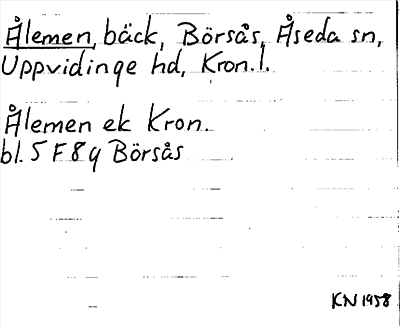 Ålemen, bäck, Börsås, Åseda sn,
Uppvidinge hd, Kron. l.
Ålemen ek Kron.
bl. 5 F 8 g Börsås
KN 1958